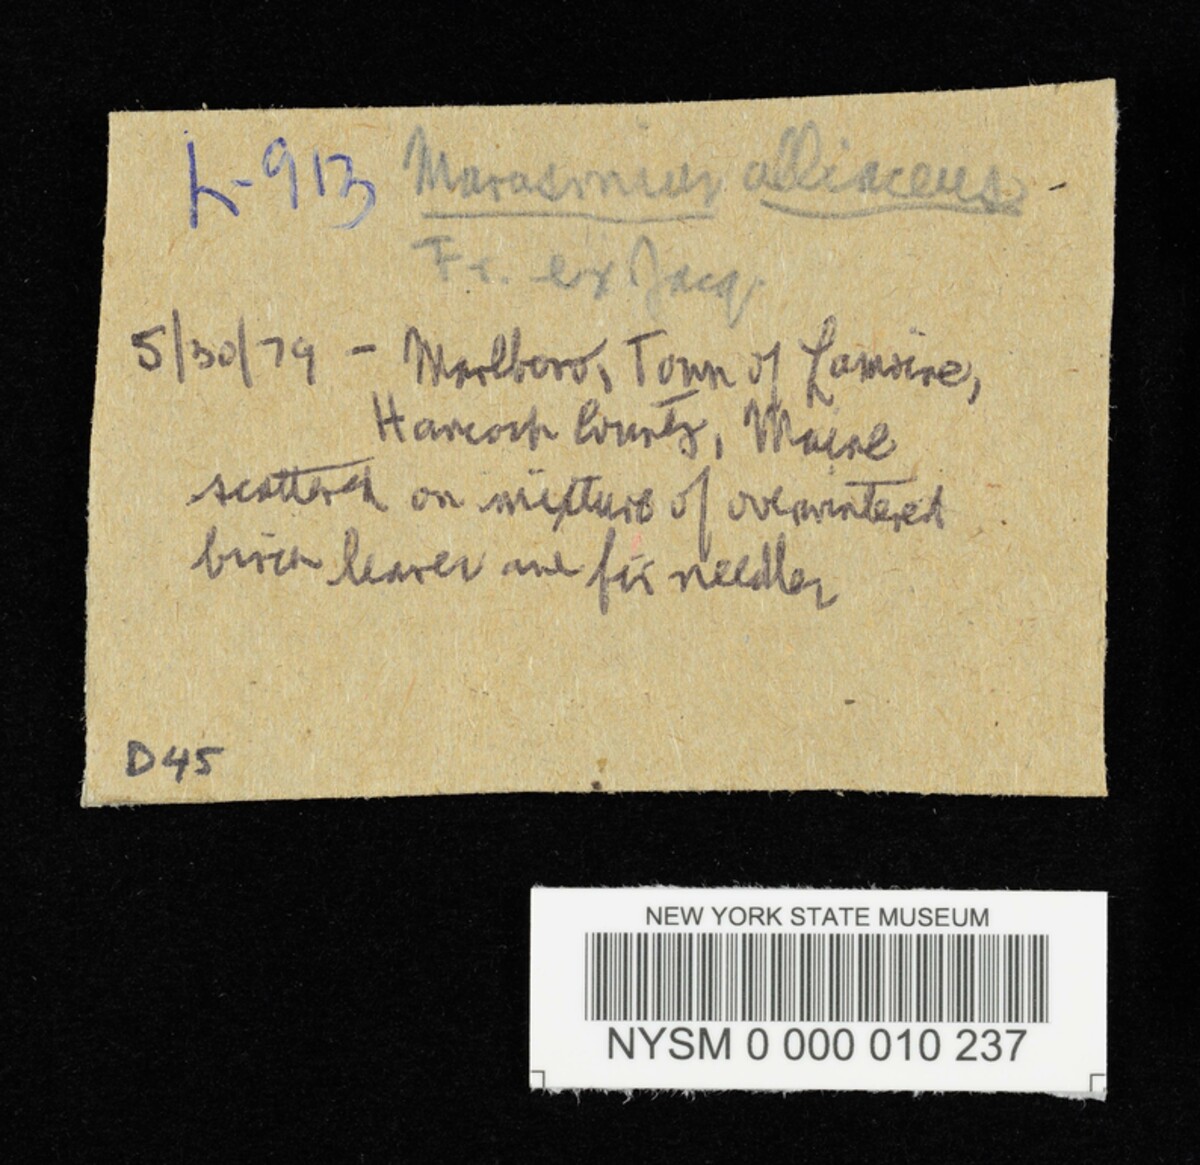 L-913 Marasmius alliaceus -
Fr. ex Jacq.
5/30/79 - Marlboro, Town of Lamoine,
Hancock County, Maine
scattered on mixture of overwintered
birch leaves and fir needles
D45
NEW YORK STATE MUSEUM
NYSM 0 000 010 237